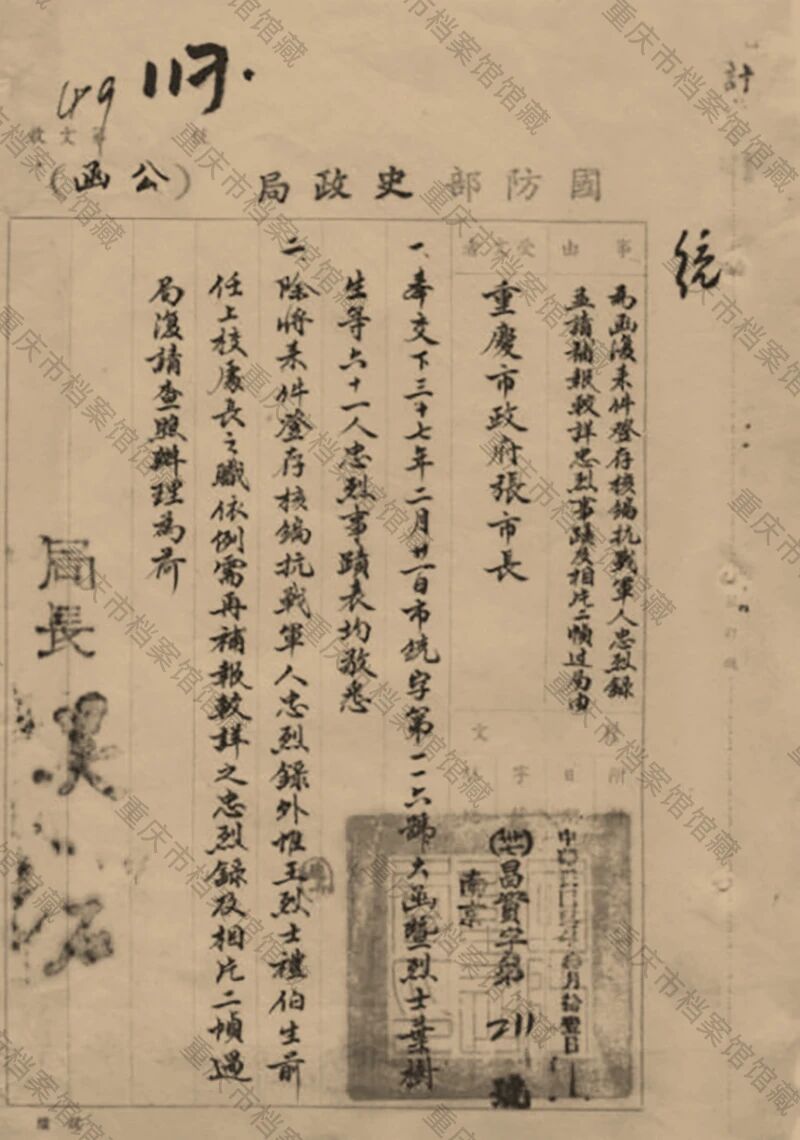 計
統
國防部史政局(公函)
事由
為函復来件登存核編抗戰軍人忠烈錄
并請補報較詳忠烈事蹟及相片二幀过局由
受文者
重慶市政府張市長
附
日
字
文
(卅七)昌實字第211號
南京
一、奉交下三十七年二月廿一日市統字第一一六號大函暨烈士葉樹
生等六十一人忠烈事蹟表均敬悉
二、除將来件登存核編抗戰軍人忠烈錄外惟王烈士禮伯生前
任上校處長之職依例需再補報較詳之忠烈錄及相片二幀過
局復請查照辦理為荷
局長吳
重庆市档案馆馆藏